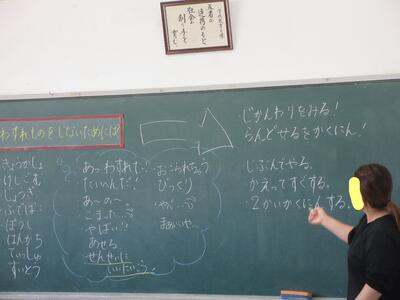 わすれものをしないためには?
きょうかしょ
けしごむ
じょうぎ
ふでばこ
ぼうし
はんかち
てぃっしゅ
すいとう
あっわすれた!
たいへんだ!
あ〜の〜
こまった…
やばい!!
あせる
せんせいに
いいたい…
おこられちゃう
びっくり
やべ…
まあいいや…
じかんわりをみる!
らんどせるをかくにん!
じぶんでやる。
かえってすぐする。
・2かいかくにんする。